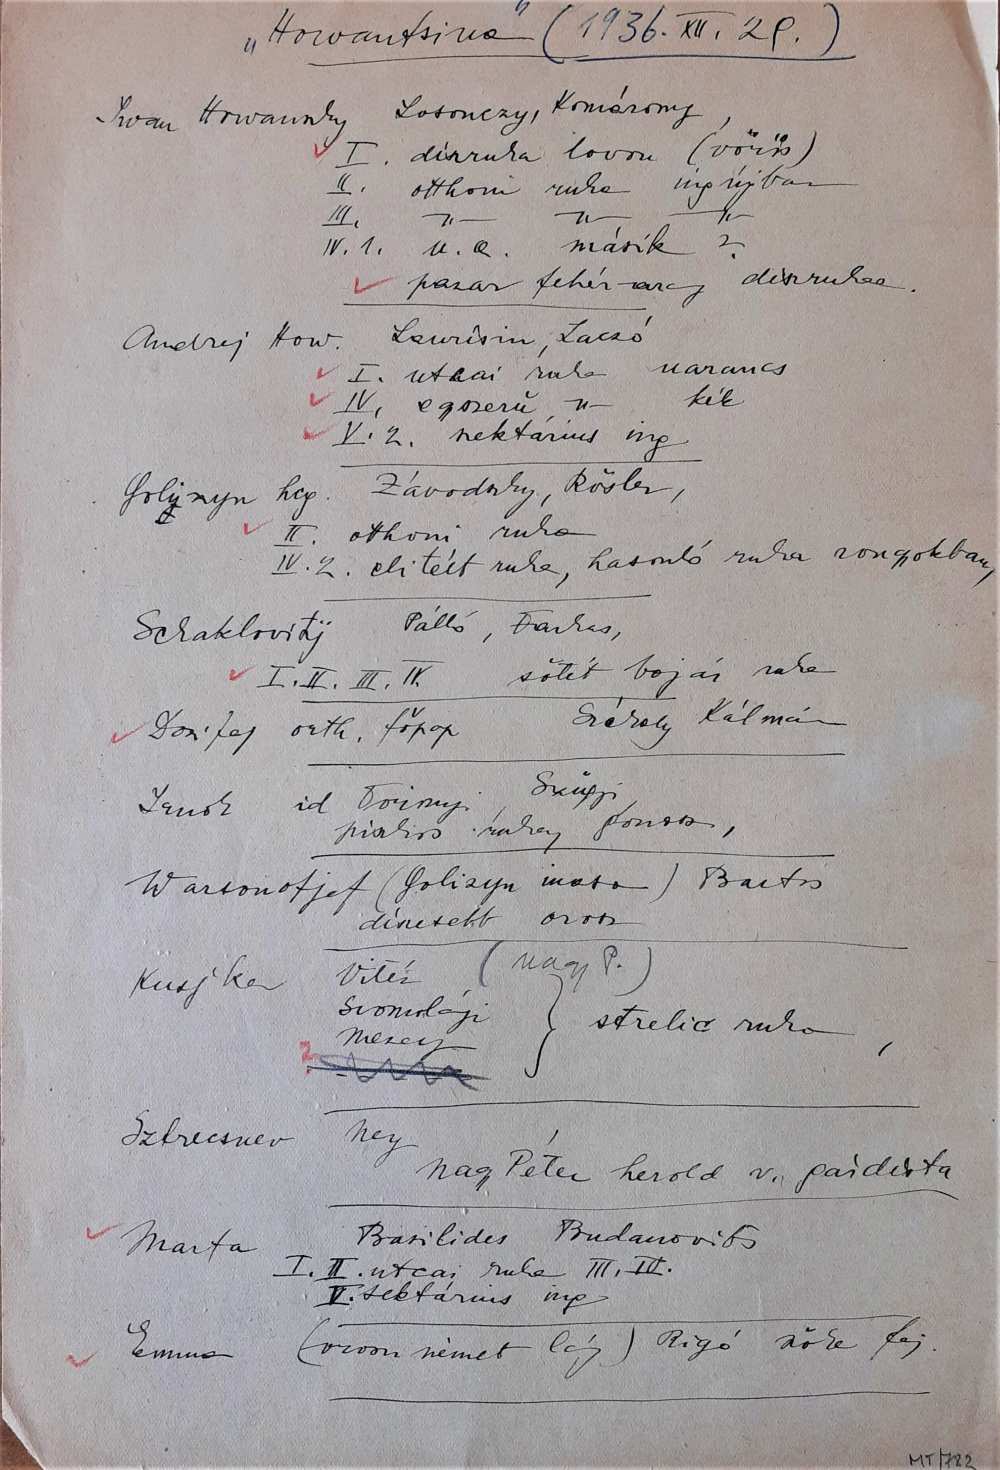 „Howantsina" (1936. XII. 29.)
Iwan Howansky Losonczy, Komáromy,
I. díszruha lovon (vörös)
II. otthoni ruha ingújban
III. –„– –„– –„–
IV. 1. u. a. másik ?
pazar fehér-arany díszruha.
Andrej How. Laurisin, Laczó
I. utcai ruha narancs
IV. egyszerű –„– kék
V. 2. szektárius ing
Golizyn hcg. Závodszky, Rösler,
II. otthoni ruha
IV. 2. elitélt ruha, hasonló ruha rongyokban,
Schaklovitij Palló, Farkas,
I. II. III. IV. sötét bojár ruha
Dosifej orth. főpap Székely Kálmán
id Toronyi, Szügyi
piszkos ruha,
Warsonofjef (Golizyn) Bartos
díszesebb orosz
Kusjka Vitéz (nagy P.)
Somolányi
Mezey
strelic ruha,
?
Sztresnev Ney
Nagy Péter herold v. gárdista
Marfa Basilides Budanovits
I. II. utcai ruha III. IV.
V. szektárius ing
Emma (orosz német lány) Rigó szőke haj.
MT/782